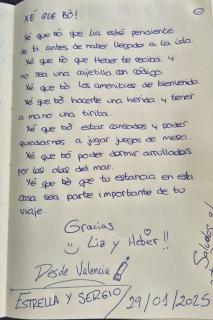 XÉ QUE BÓ!
Xé que bó que Lia esté pendiente
de ti antes de haber llegado a la isla.
Xé que bó que Heber te reciba y
no sea una cajetilla con código.
Xé que bó las amenities de bienvenida.
Xé que bó hacerte una herida y tener
a mano una tirita.
Xé que bó estar cansados y poder
quedarnos a jugar juegos de mesa.
Xé que bó poder dormir arrullados
por las olas del mar.
Xé que bó que tu estancia en esta
casa sea parte importante de tu
viaje.
Gracias
Lia y Heber!!
Desde Valencia
ESTRELLA Y SERGIO
29/01/2025